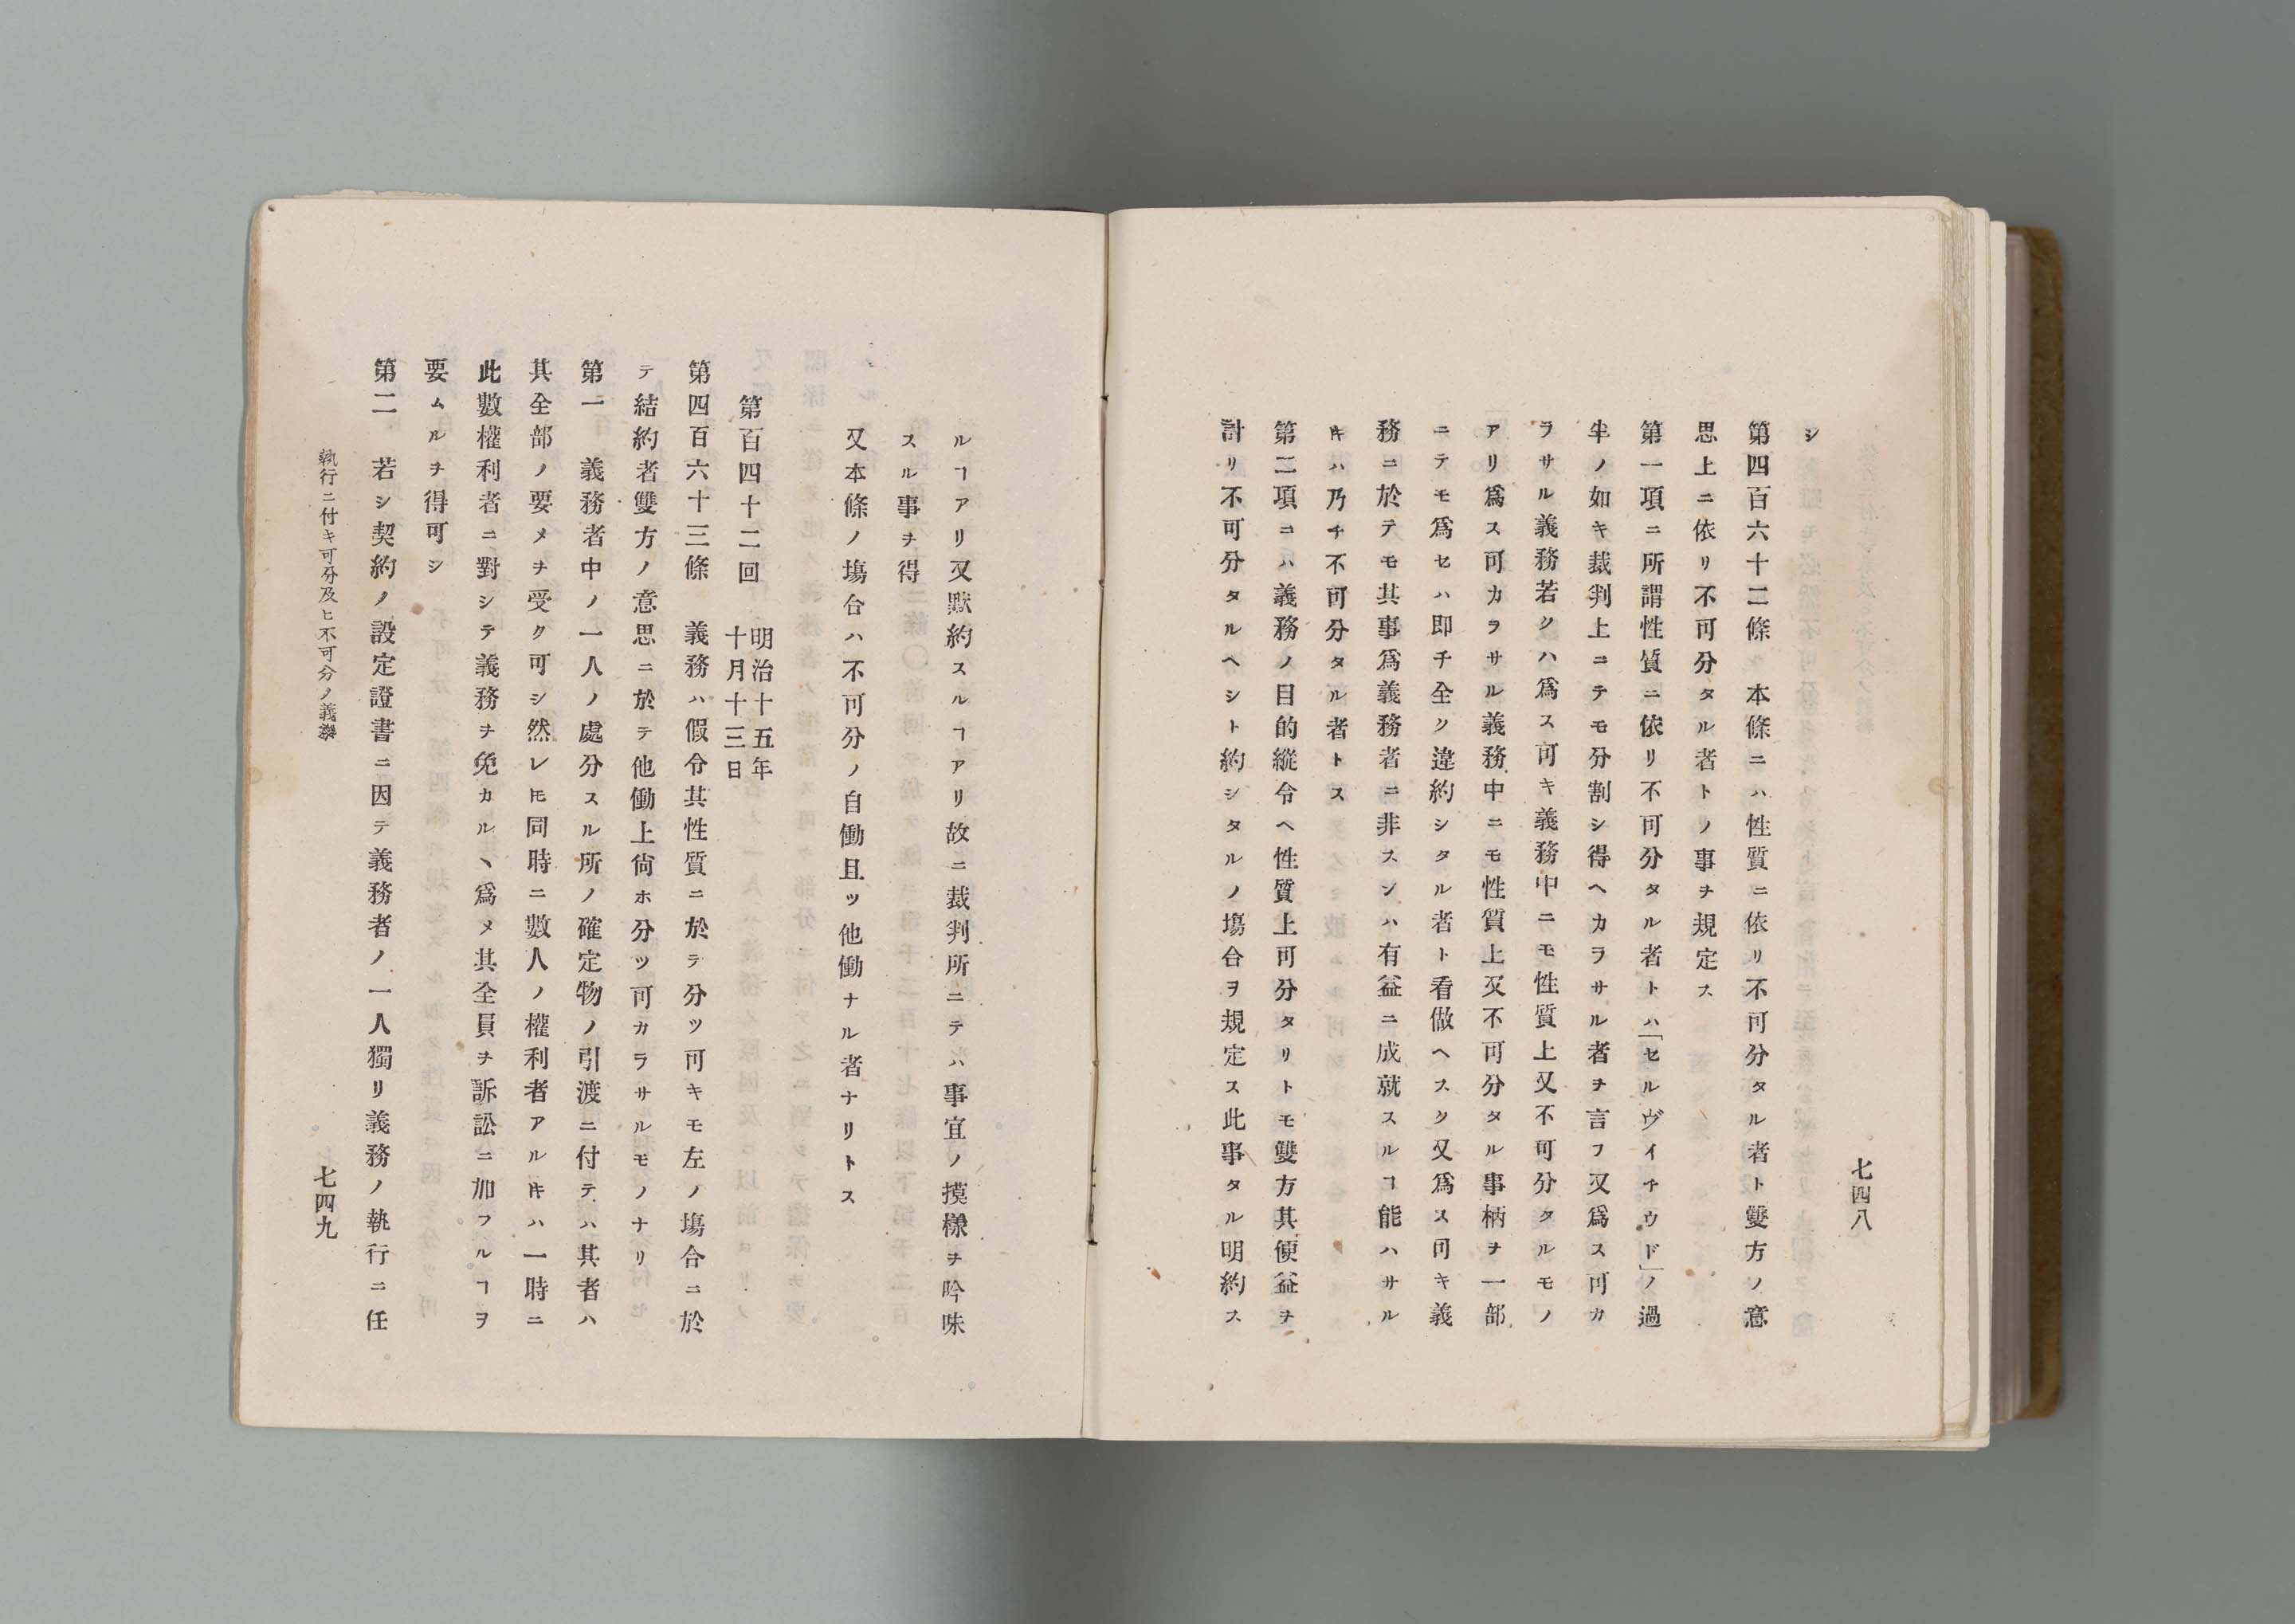 七四八
シ
第四百六十二條　本條ニハ性質ニ依リ不可分タル者ト雙方ノ意
思上ニ依リ不可分タル者トノ事ヲ規定ス
第一項ニ所謂性質ニ依リ不可分タル者トハ「セルヴイチウド」ノ過
半ノ如キ裁判上ニテモ分割シ得ヘカラサル者ヲ言フ又爲ス可カ
ラサル義務若クハ爲ス可キ義務中ニモ性質上又不可分タルモノ
アリ爲ス可カラサル義務中ニモ性質上又不可分タル事柄ヲ一部
ニテモ爲セハ即チ全ク違約シタル者ト看做ヘスク又爲ス可キ義
務ニ於テモ其事爲義務者ニ非スンハ有益ニ成就スルヿ能ハサル
𪜈ハ乃チ不可分タル者トス
第二項ニハ義務ノ目的縱令ヘ性質上可分タリトモ雙方其便益ヲ
計リ不可分タルヘシト約シタルノ塲合ヲ規定ス此事タル明約ス
ルヿアリ又默約スルヿアリ故ニ裁判所ニテハ事宜ノ摸樣ヲ吟味
スル事ヲ得
又本條ノ塲合ハ不可分ノ自働且ツ他働ナル者ナリトス
第百四十二回　明治十五年
十月十三日
第四百六十三條　義務ハ假令其性質ニ於テ分ツ可キモ左ノ塲合ニ於
テ結約者雙方ノ意思ニ於テ他働上尙ホ分ツ可カラサルモノナリ
第一　義務者中ノ一人ノ處分スル所ノ確定物ノ引渡ニ付テハ其者ハ
其全部ノ要メヲ受ク可シ然レ𪜈同時ニ數人ノ權利者アルキハ一時ニ
此數權利者ニ對シテ義務ヲ免カルヽ爲メ其全員ヲ訴訟ニ加フルヿヲ
要ムルヲ得可シ
第二　若シ契約ノ設定證書ニ因テ義務者ノ一人獨リ義務ノ執行ニ任
執行ニ付キ可分及ヒ不可分ノ義務
七四九